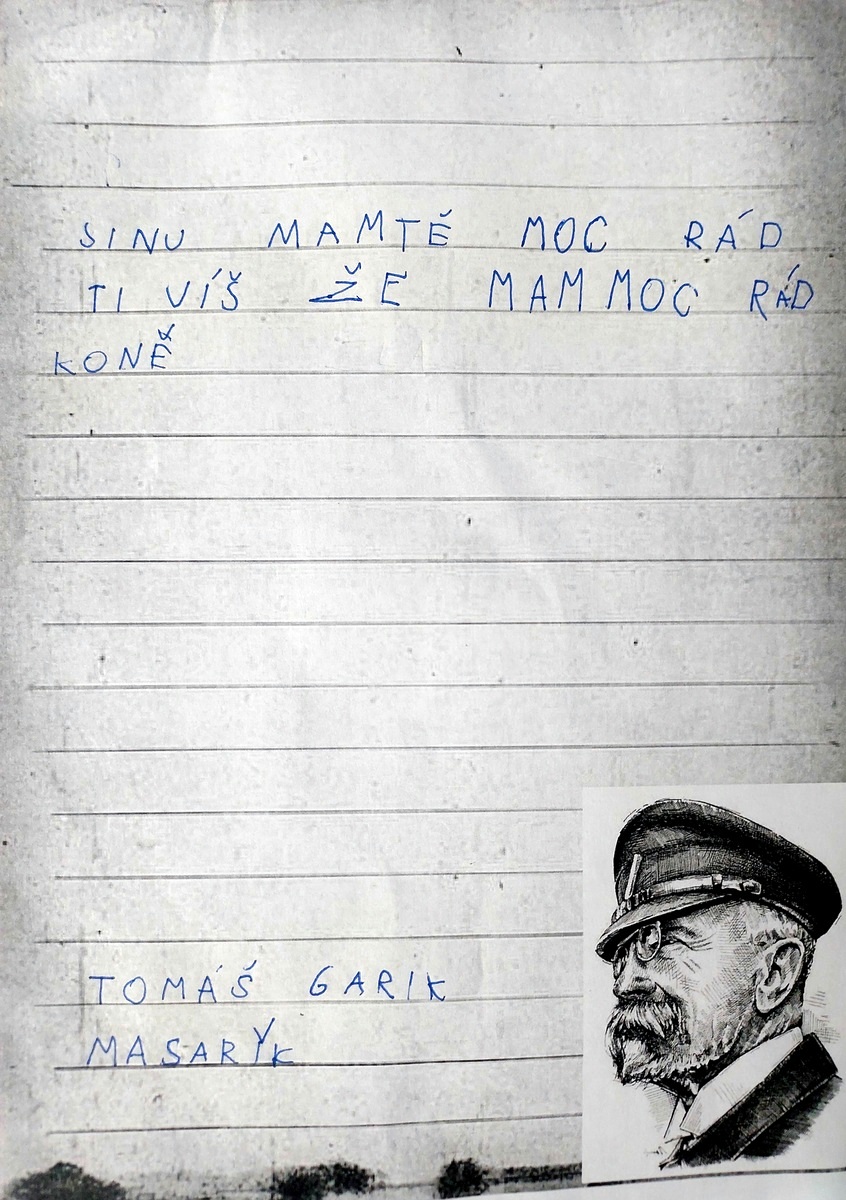 SINU MAMTĚ MOC RÁD
TI VÍŠ ŽE MAM MOC RÁD
KONĚ
TOMÁŠ GARIK
MASARYK